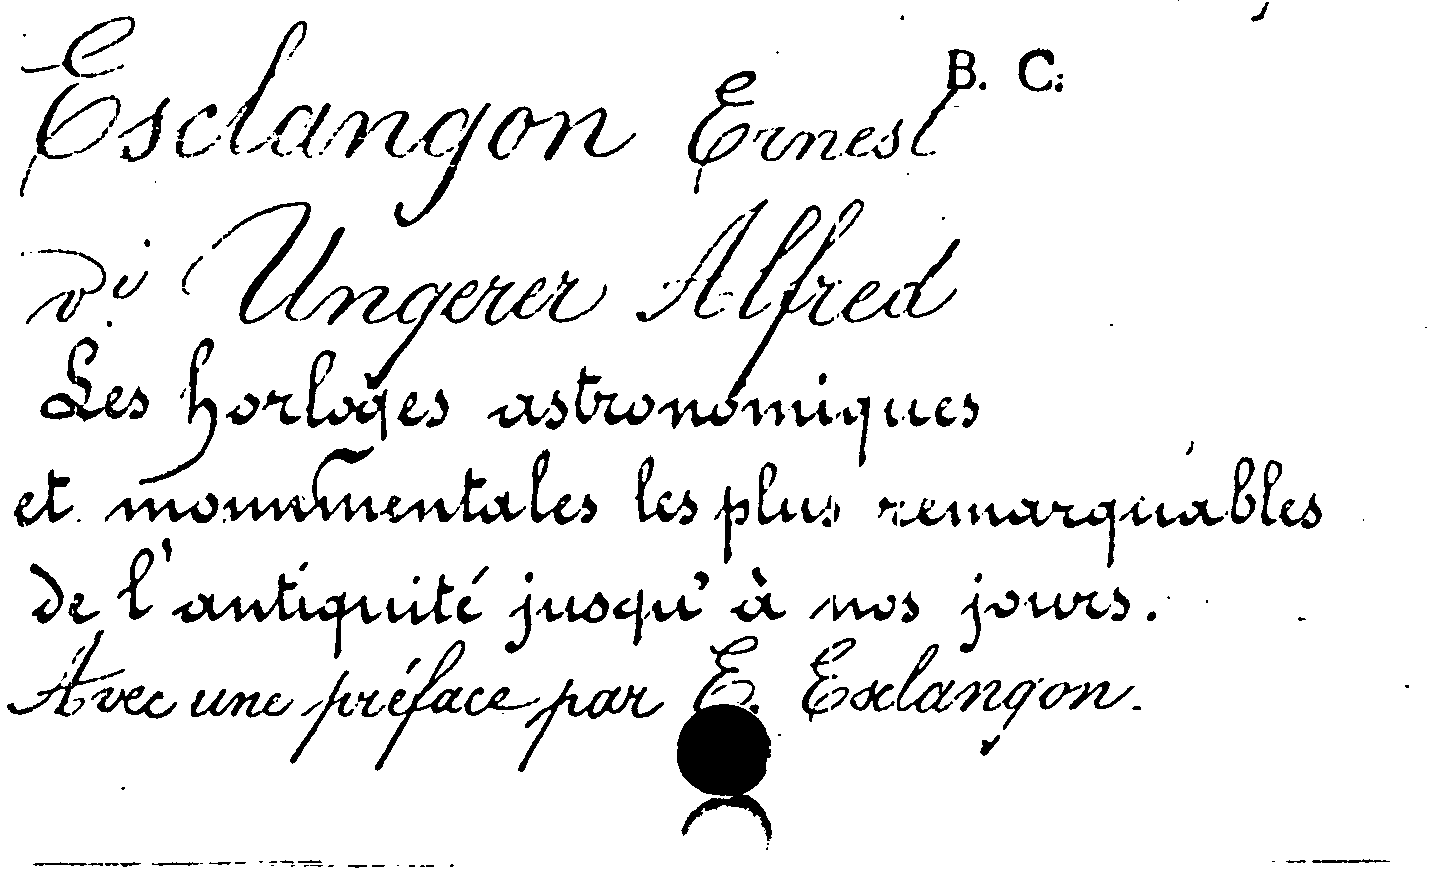 B. C.
Esclangon Ernest
vi Ungerer Alfred
Les horloges astronomiques
et monumentales les plus remarquables
de l'antiquité jusqu'à nos jours.
Avec une préface par E. Esclangon.